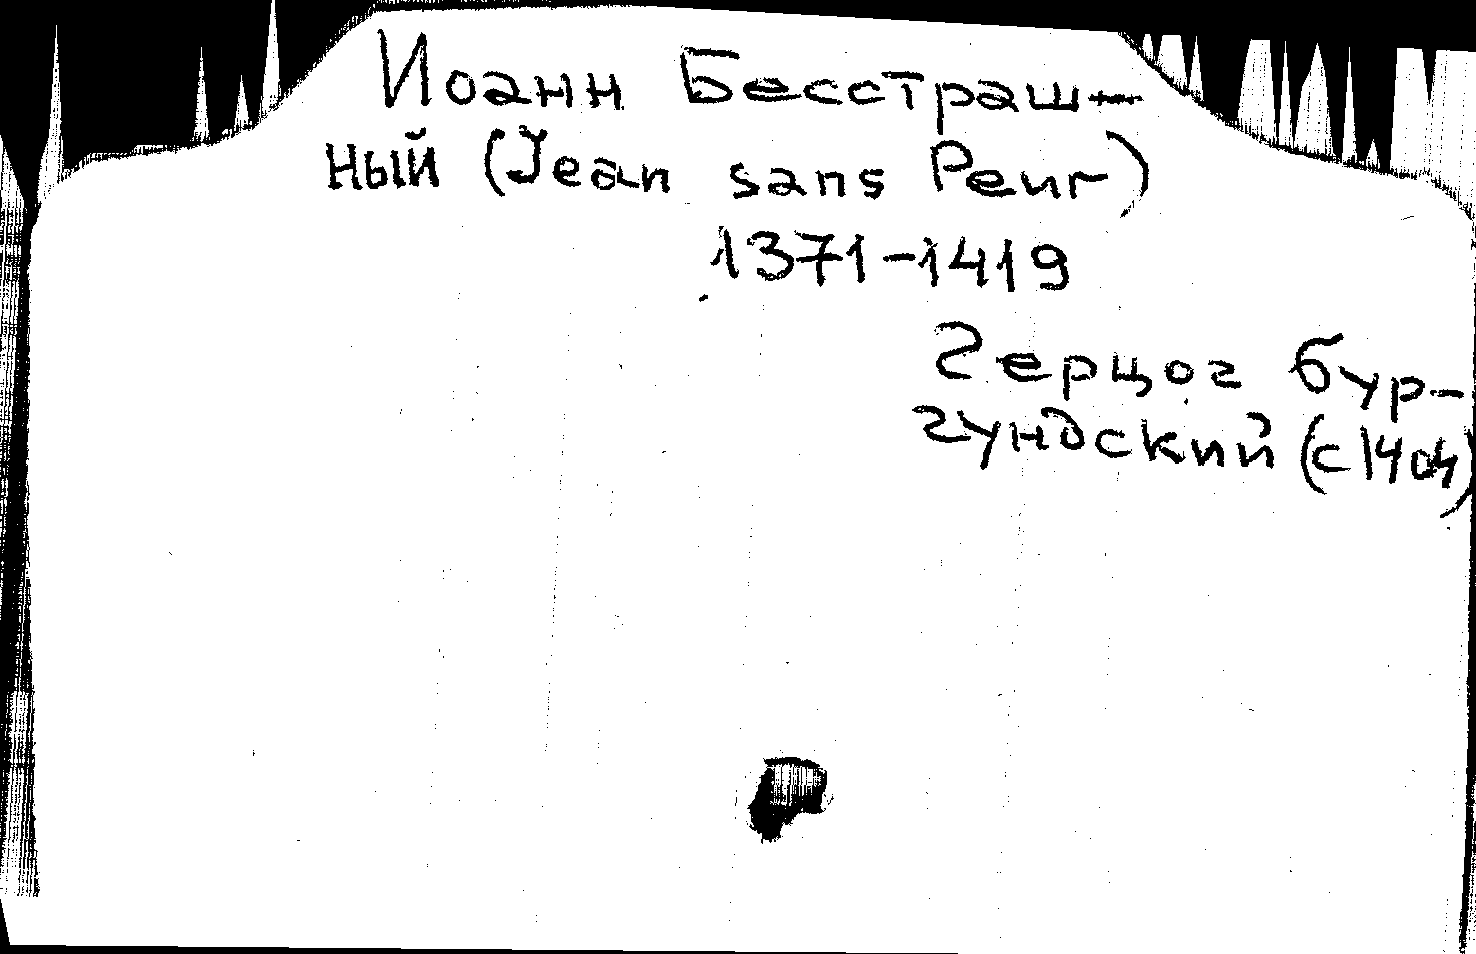 Иоанн Бесстраш-
ный (Jean sans Peur)
1371-1419
Герцог бур-
гундский (с 1404)